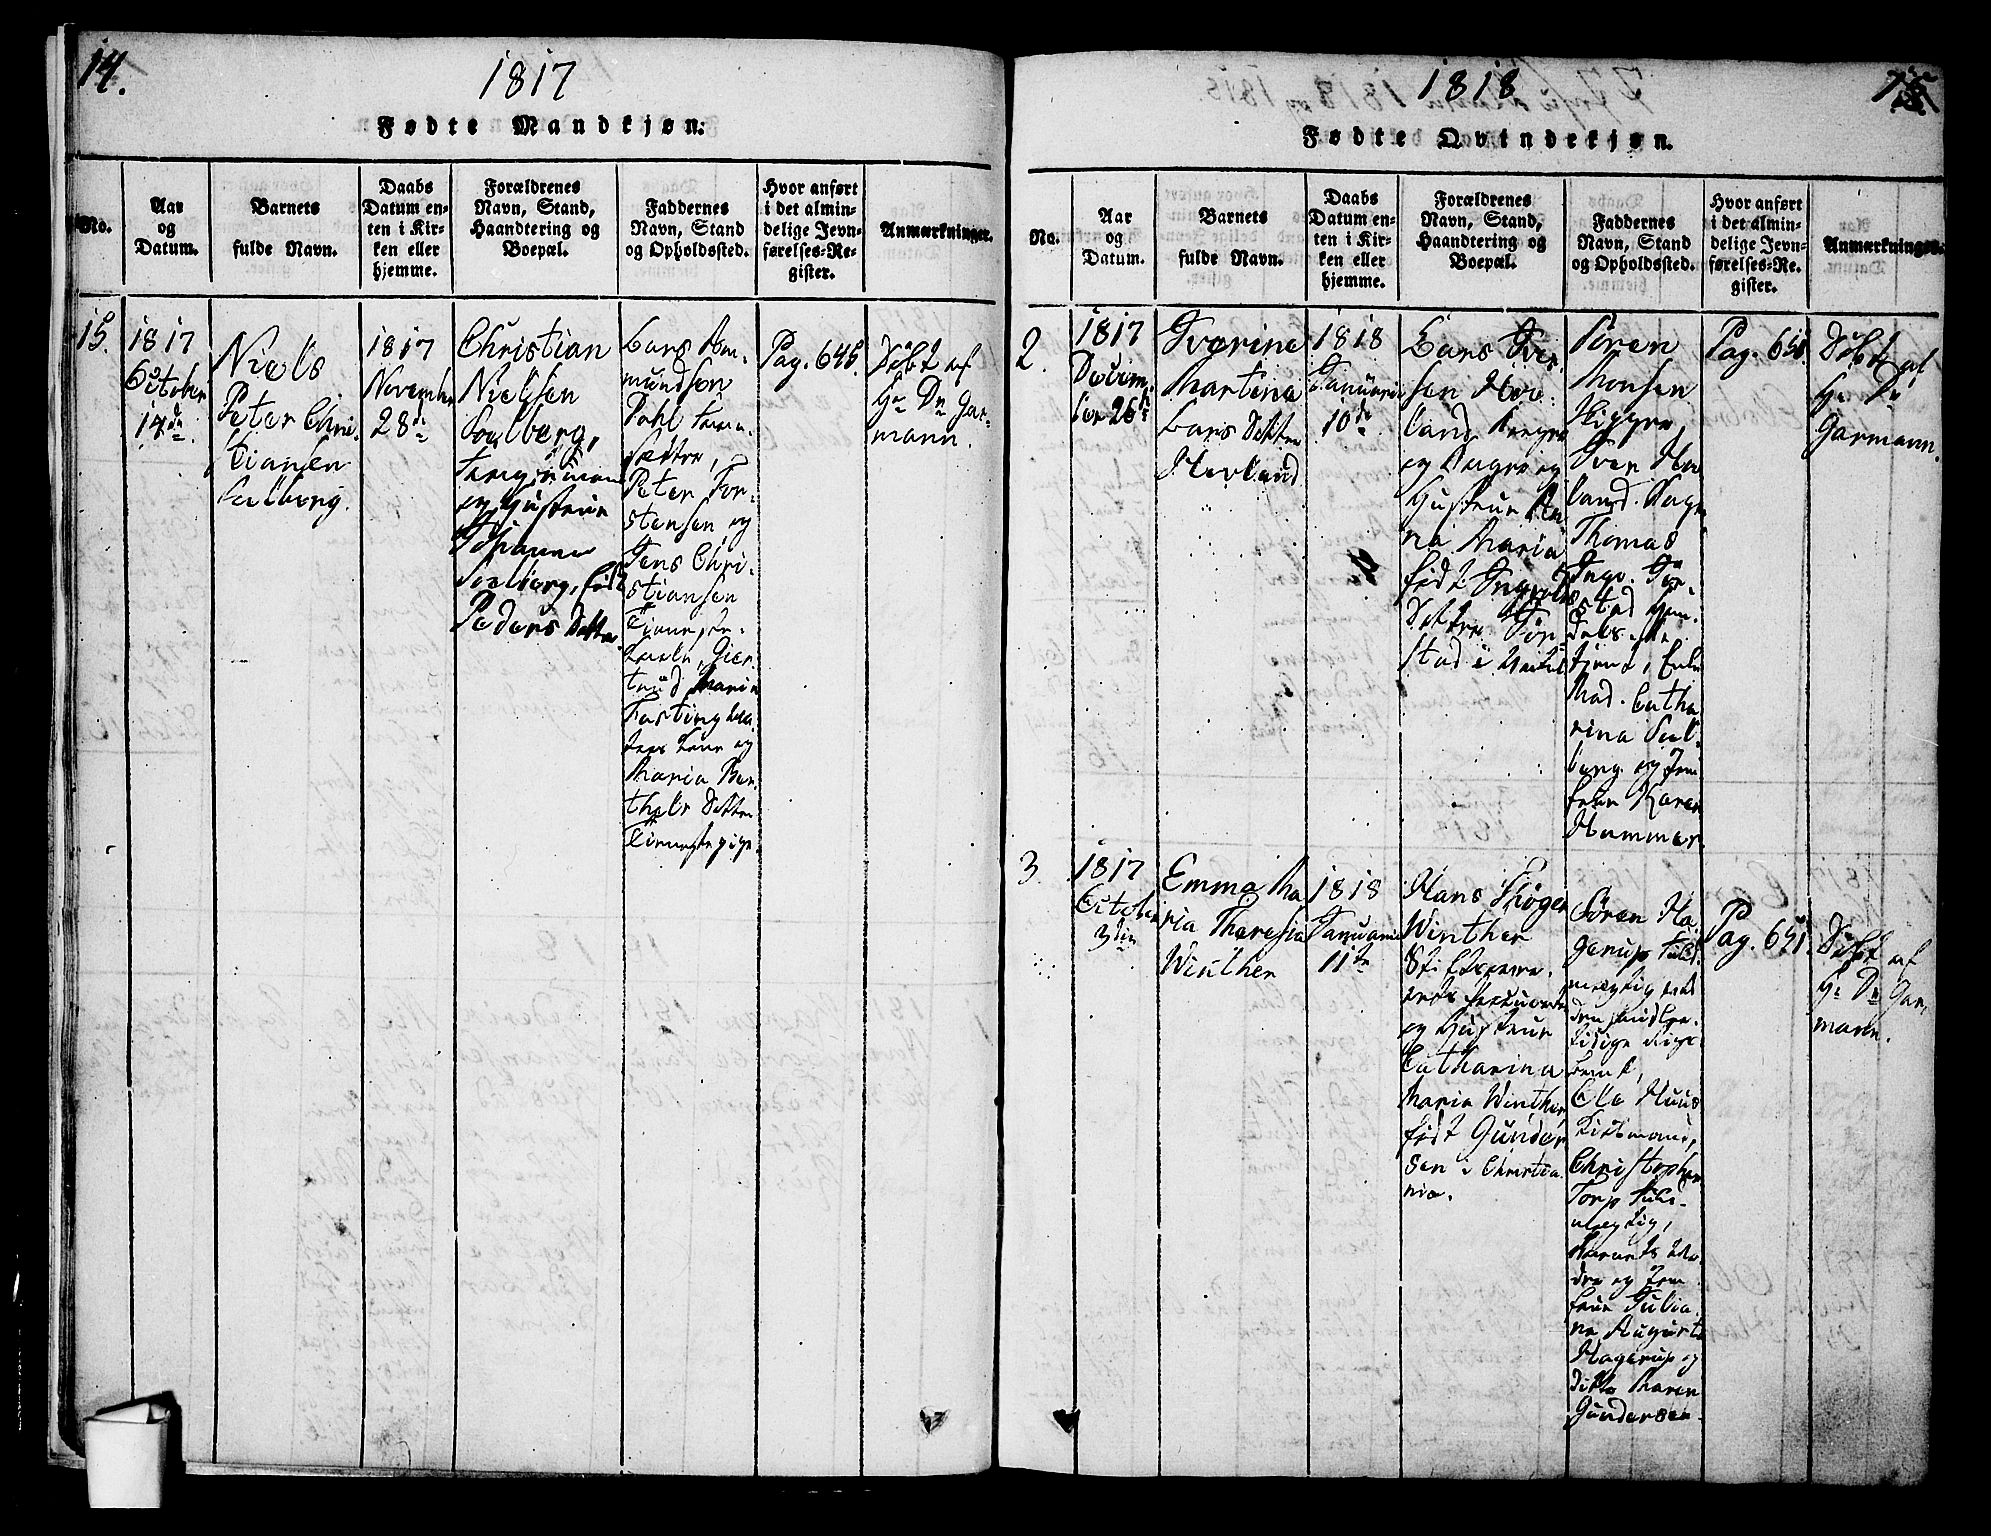 14.
1817
Fødte Mandkjøn.
No.
Aar
og
Datum.
Barnets
fulde Navn.
Daabs
Datum en-
ten i Kir-
ken eller
hjemme.
Forældrenes
Navn, Stand,
Haandtering og
Boepæl.
Faddernes
Navn, Stand
og Opholdssted.
Hvor anført
i det almin-
delige Jevn-
førelses-Re-
gister.
Anmærkninger.
15.
1817
October
14de
Niels
Peter Chri-
stiansen
Salberg.
1817
November
28de
Christian
Nielsen
Soelberg,
og Hustrue
Johanne
Soelberg, født
Peders Datter
Lars Am-
mundsøn
Dahl
Peter Tor-
stensen og
Jens Chri-
stiansen
Tieneste-
karle, Gier-
trud Maria
Fasting
og
Maria Bar-
thels Datter
Tienestepige.
Pag. 645.
Døbt af
Hr. Dn Gar-
mann.
1818
15
Fødte Qvindekjøn.
No.
Aar
og
Datum.
Barnets
fulde Navn.
Daabs
Datum en-
ten i Kir-
ken eller
hjemme.
Forældrenes
Navn, Stand,
Haandtering og
Boepæl.
Faddernes
Navn, Stand
og Opholdssted.
Hvor anført
i det almin-
delige Jevn-
førelses-Re-
gister.
Anmærkninger.
2.
1817
Decem-
ber 26de
Iverine
Martine
Lars Datter
Hevland
1818
Januarii
10de
Lars Iver-
sen Hov-
land
og
Hustrue An-
na Maria
født Ingvolds
Datter Tor-
stad i
Søren
Monsen
Skipper,
Iver Hov-
land
Thomas
Ingv. Tor-
stad Han-
dels-Be-
tjent,
Mad. Catha-
rina Sal-
berg og Jom-
frue Karen
Hammer
Pag. 651
Døbt af
Hr. Dn
Garmann.
3.
1817
October
3die
Emma Ma-
ria Theresia
Winther
1818
Januarii
11te
Hans Thøger
Winther
og Hustrue
Catharina
Maria Winther
født Gunder-
sen i Christia-
nia.
Søren Ha-
gerup Fuld-
mægtig ved
den midler-
tidige Rigs-
bank,
Ole Huus
Kiøbmand,
Christopher
Torp Fuld-
mægtig,
Barnets Mo-
der og Jom-
frue Julia-
ne Augusta
Hagerup og
ditto Maren
Gundersen.
Pag. 651.
Døbt af
Hr. Dn Gar-
mann.